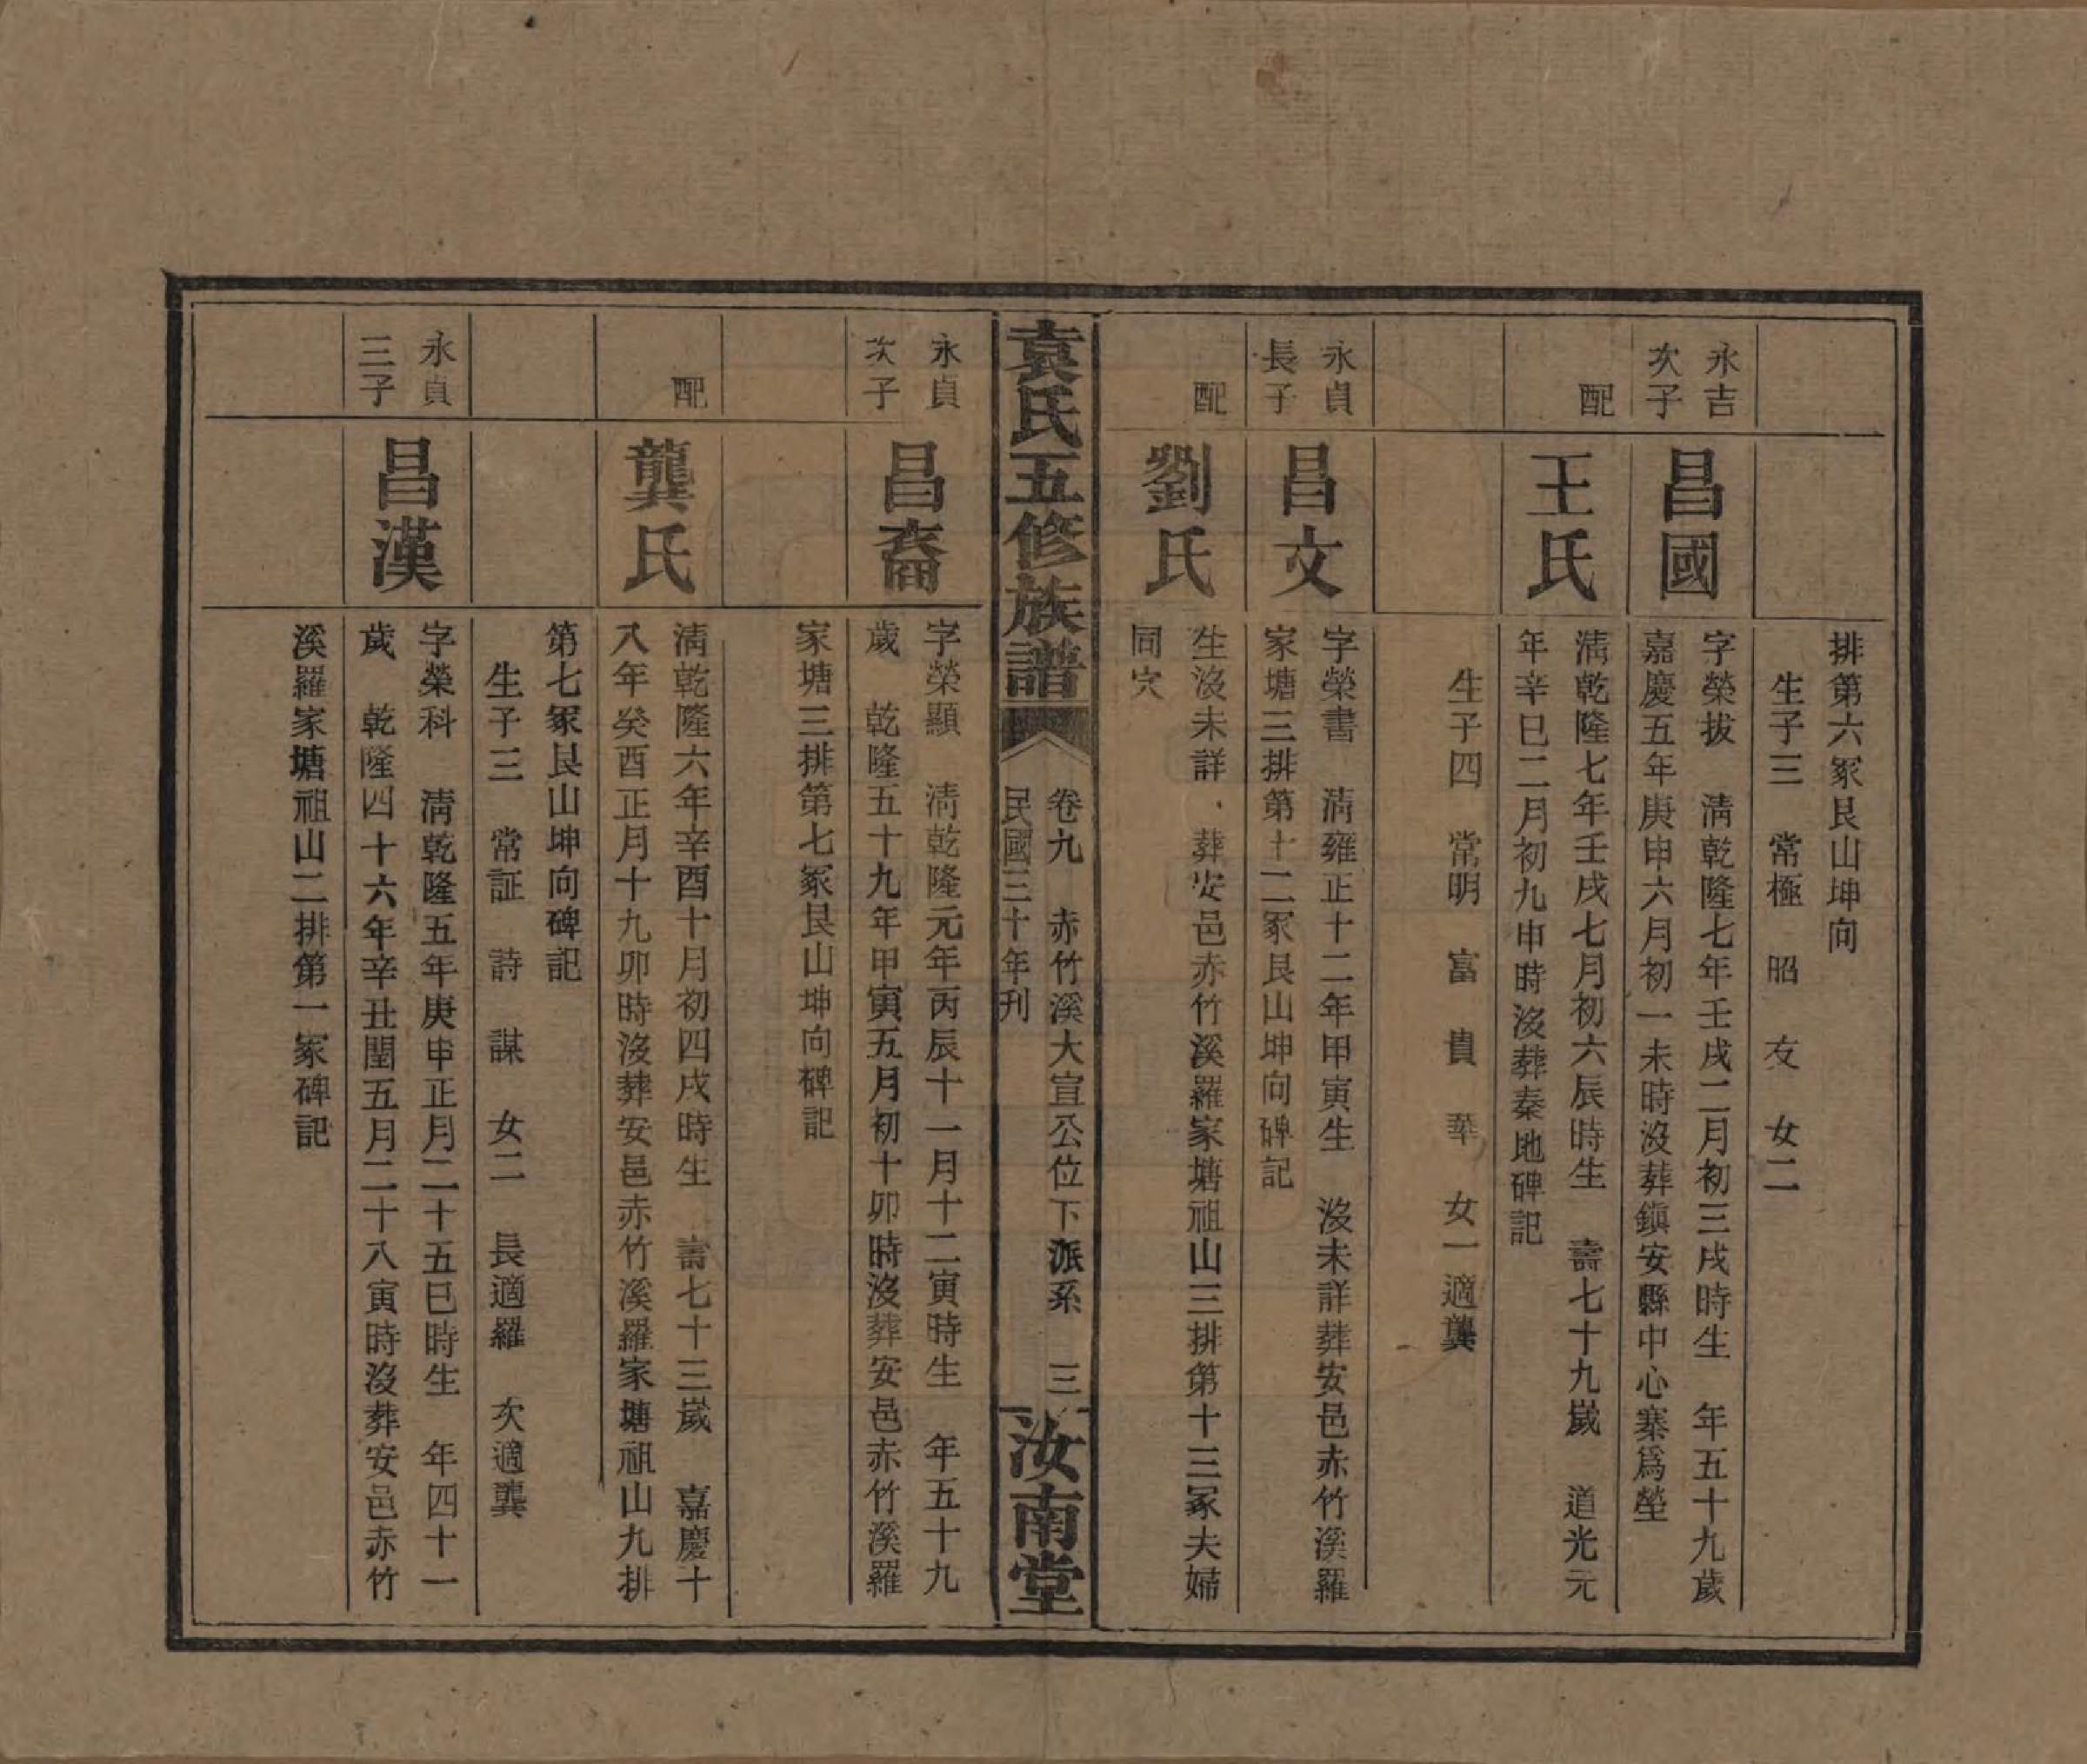 排第六冢艮山坤向
生子三　常極　昭　友　女二
永吉
次子
昌國
字榮拔　淸乾隆七年壬戌二月初三戌時生　年五十九歲
嘉慶五年庚申六月初一未時沒葬鎭安縣中心寨爲塋
配
王氏
淸乾隆七年壬戌七月初六辰時生　壽七十九歲　道光元
年辛巳二月初九申時沒葬秦地碑記
生子四　常明　富　貴　華　女一適龔
永貞
長子
昌文
字榮書　淸雍正十二年甲寅生　沒未詳葬安邑赤竹溪羅
家塘三排第十二冢艮山坤向碑記
配
劉氏
生沒未詳、葬安邑赤竹溪羅家塘祖山三排第十三冢夫婦
同穴
袁氏五修族譜
卷九　赤竹溪大宣公位下派系　三
民國三十年刊
汝南堂
永貞
次子
昌裔
字榮顯　淸乾隆元年丙辰十一月十二寅時生　年五十九
歲　乾隆五十九年甲寅五月初十卯時沒葬安邑赤竹溪羅
家塘三排第七冢艮山坤向碑記
配
龔氏
淸乾隆六年辛酉十月初四戌時生　壽七十三歲　嘉慶十
八年癸酉正月十九卯時沒葬安邑赤竹溪羅家塘祖山九排
第七冢艮山坤向碑記
生子三　常証　詩　謀　女二　長適羅　次適龔
永貞
三子
昌漢
字榮科　淸乾隆五年庚申正月二十五巳時生　年四十一
歲　乾隆四十六年辛丑閏五月二十八寅時沒葬安邑赤竹
溪羅家塘祖山二排第一冢碑記